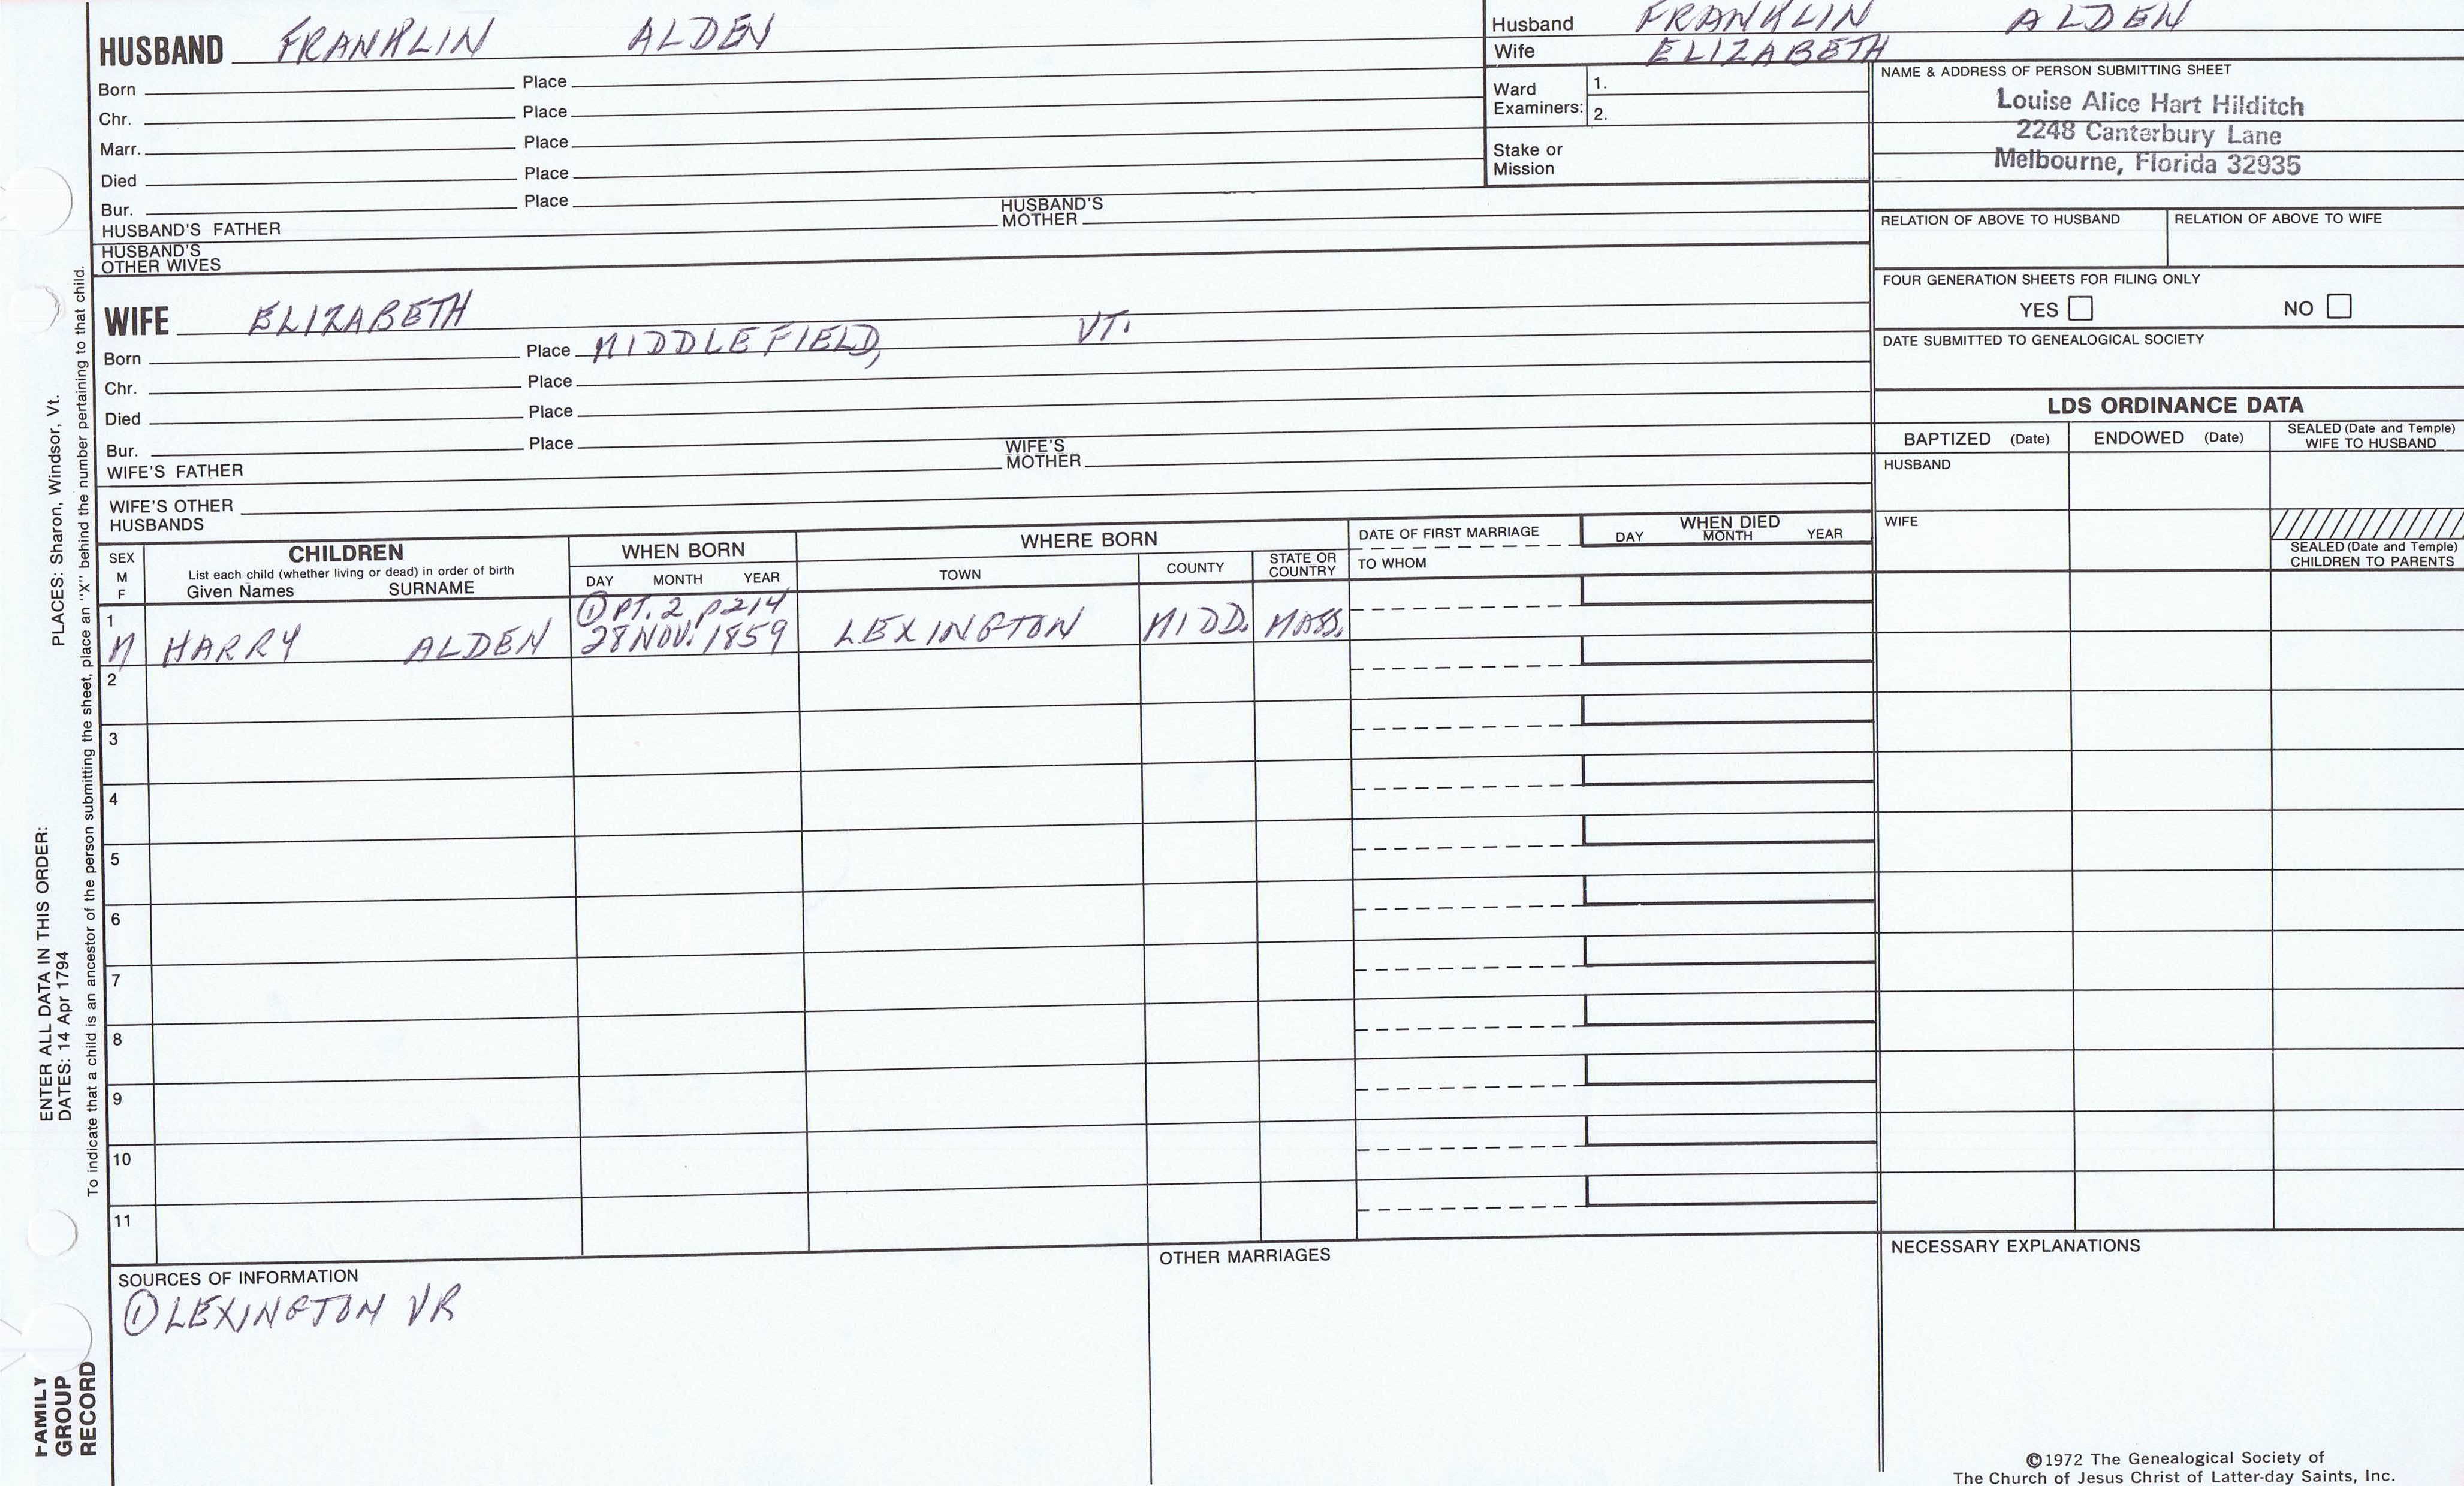 HUSBAND FRANKLIN ALDEN
Born Place
Chr. Place
Marr. Place
Died Place
Bur. Place
HUSBAND'S FATHER HUSBAND'S MOTHER
HUSBAND'S OTHER WIVES
WIFE ELIZABETH
Born Place MIDDLEFIELD, VT.
Chr. Place
Died Place
Bur. Place
WIFE'S FATHER WIFE'S MOTHER
WIFE'S OTHER HUSBANDS
Husband FRANKLIN ALDEN
Wife ELIZABETH
Ward Examiners: 1.
2.
Stake or Mission
NAME & ADDRESS OF PERSON SUBMITTING SHEET
Louise Alice Hart Hilditch
2248 Canterbury Lane
Melbourne, Florida 32935
RELATION OF ABOVE TO HUSBAND RELATION OF ABOVE TO WIFE
FOUR GENERATION SHEETS FOR FILING ONLY
YES NO
DATE SUBMITTED TO GENEALOGICAL SOCIETY
LDS ORDINANCE DATA
BAPTIZED (Date) ENDOWED (Date) SEALED (Date and Temple) WIFE TO HUSBAND
HUSBAND
WIFE
SEALED (Date and Temple) CHILDREN TO PARENTS
SEX M F
CHILDREN
List each child (whether living or dead) in order of birth
Given Names SURNAME
WHEN BORN
DAY MONTH YEAR
WHERE BORN
TOWN COUNTY STATE OR COUNTRY
DATE OF FIRST MARRIAGE
TO WHOM
WHEN DIED
DAY MONTH YEAR
① PT. 2 P214
1 M HARRY ALDEN 28 NOV. 1859 LEXINGTON MIDD. MASS.
2
3
4
5
6
7
8
9
10
11
SOURCES OF INFORMATION
① LEXINGTON VR
OTHER MARRIAGES
NECESSARY EXPLANATIONS
©1972 The Genealogical Society of
The Church of Jesus Christ of Latter-day Saints, Inc.
ENTER ALL DATA IN THIS ORDER:
DATES: 14 Apr 1794 PLACES: Sharon, Windsor, Vt.
To indicate that a child is an ancestor of the person submitting the sheet, place an "X" behind the number pertaining to that child.
FAMILY
GROUP
RECORD